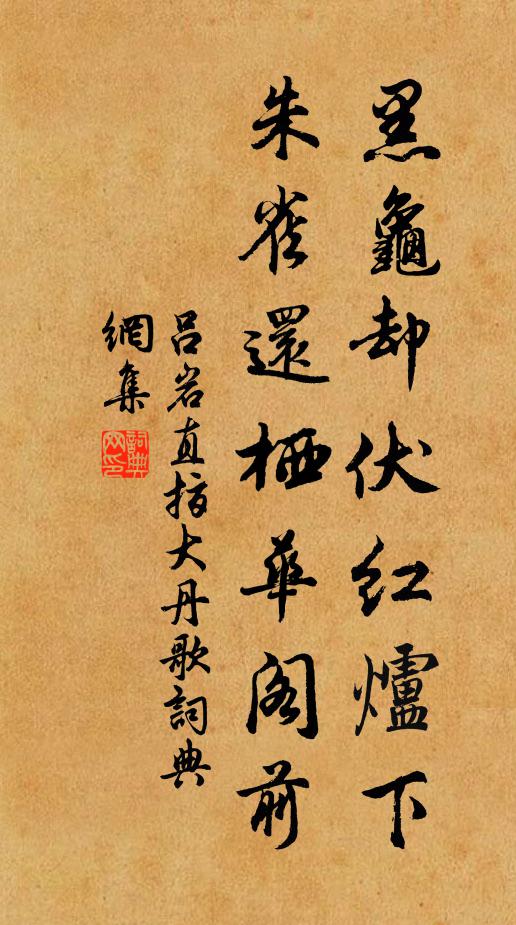 黑龜却伏紅爐下
朱雀還栖華閣前
呂岩直指大丹歌詞典
網集
詞典網印